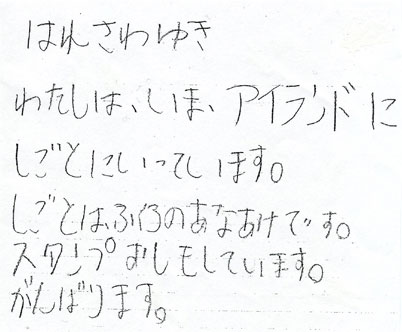 はんざわゆき
わたしは、いま、アイランドに
しごとにいっています。
しごとは、ふくろのあなあけです。
スタンプおしもしています。
がんばります。